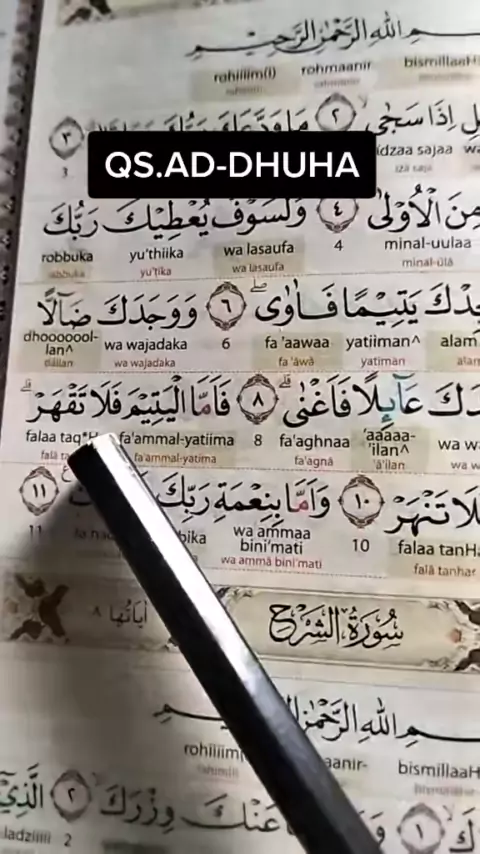 ـسم الله الرحمن الرحيم
rohiiim(i) rohmaanir bismillaaH
ـلِ اِذَا سَجٰى ٢ مَا وَدَّعَكَ رَبُّكَ ٣
QS.AD-DHUHA
idzaa sajaa
3
مِنَ الْاُوْلٰى ٤ وَلَسَوْفَ يُعْطِيْكَ رَبُّكَ
robbuka yu'thiika wa lasaufa 4 minal-uulaa
yu'ṭīka wa lasaufa minal-ūlā
ـجِدْكَ يَتِيْمًا فَاٰوٰى ٦ وَوَجَدَكَ ضَاۤلًّا
dhooooool-lan^ wa wajadaka 6 fa 'aawaa yatiiman^ alam
ḍāllan wa wajadaka fa 'āwā yatīman alam
ـدَكَ عَاۤىِٕلًا فَاَغْنٰى ٨ فَاَمَّا الْيَتِيْمَ فَلَا تَقْهَرْ
falaa taq*H fa'ammal-yatiima 8 fa'aghnaa 'aaaaa-'ilan^ wa w
fa'ammal-yatīma fa'agnā 'ā'ilan wa w
ـلَا تَنْهَرْ ١٠ وَاَمَّا بِنِعْمَةِ رَبِّكَ ١١
11 bika wa ammaa bini'mati 10 falaa tanHa
wa ammā bini'mati falā tanhar
سُوْرَةُ الشَّرْحِ اٰيَاتُهَا ٨
ـسم الله الرحمن
rohiiim maanir- bismillaaH
ـكَ ١ عَنْكَ وِزْرَكَ ٢ الَّذِيْ
ladziiii 2